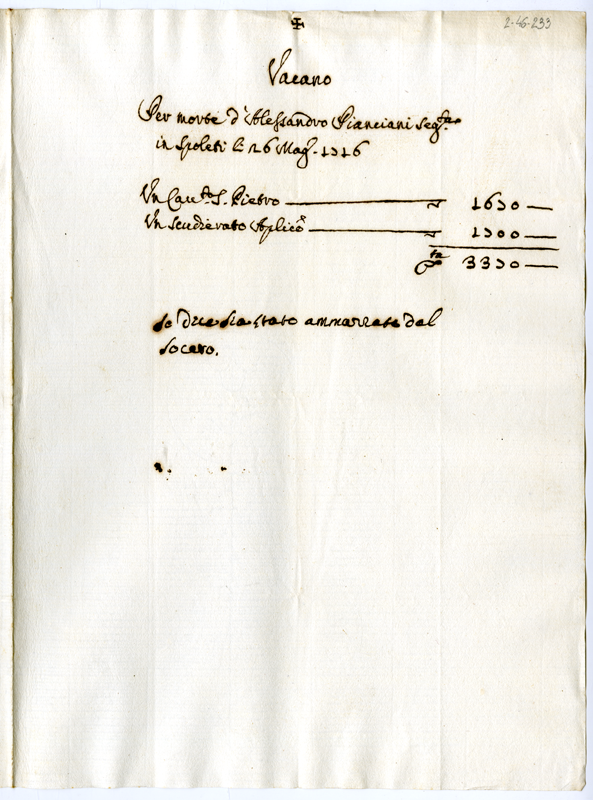 2-46-233
✠
Vacano
Per morte d'Alessandro Pianciani seg.ta
in Spoleti li 26 Mag. 1716
Un Cau.to S. Pietro 1630
Un scudierato Aplico 1700
3330
Se dice sia stato ammazzato dal
socero.